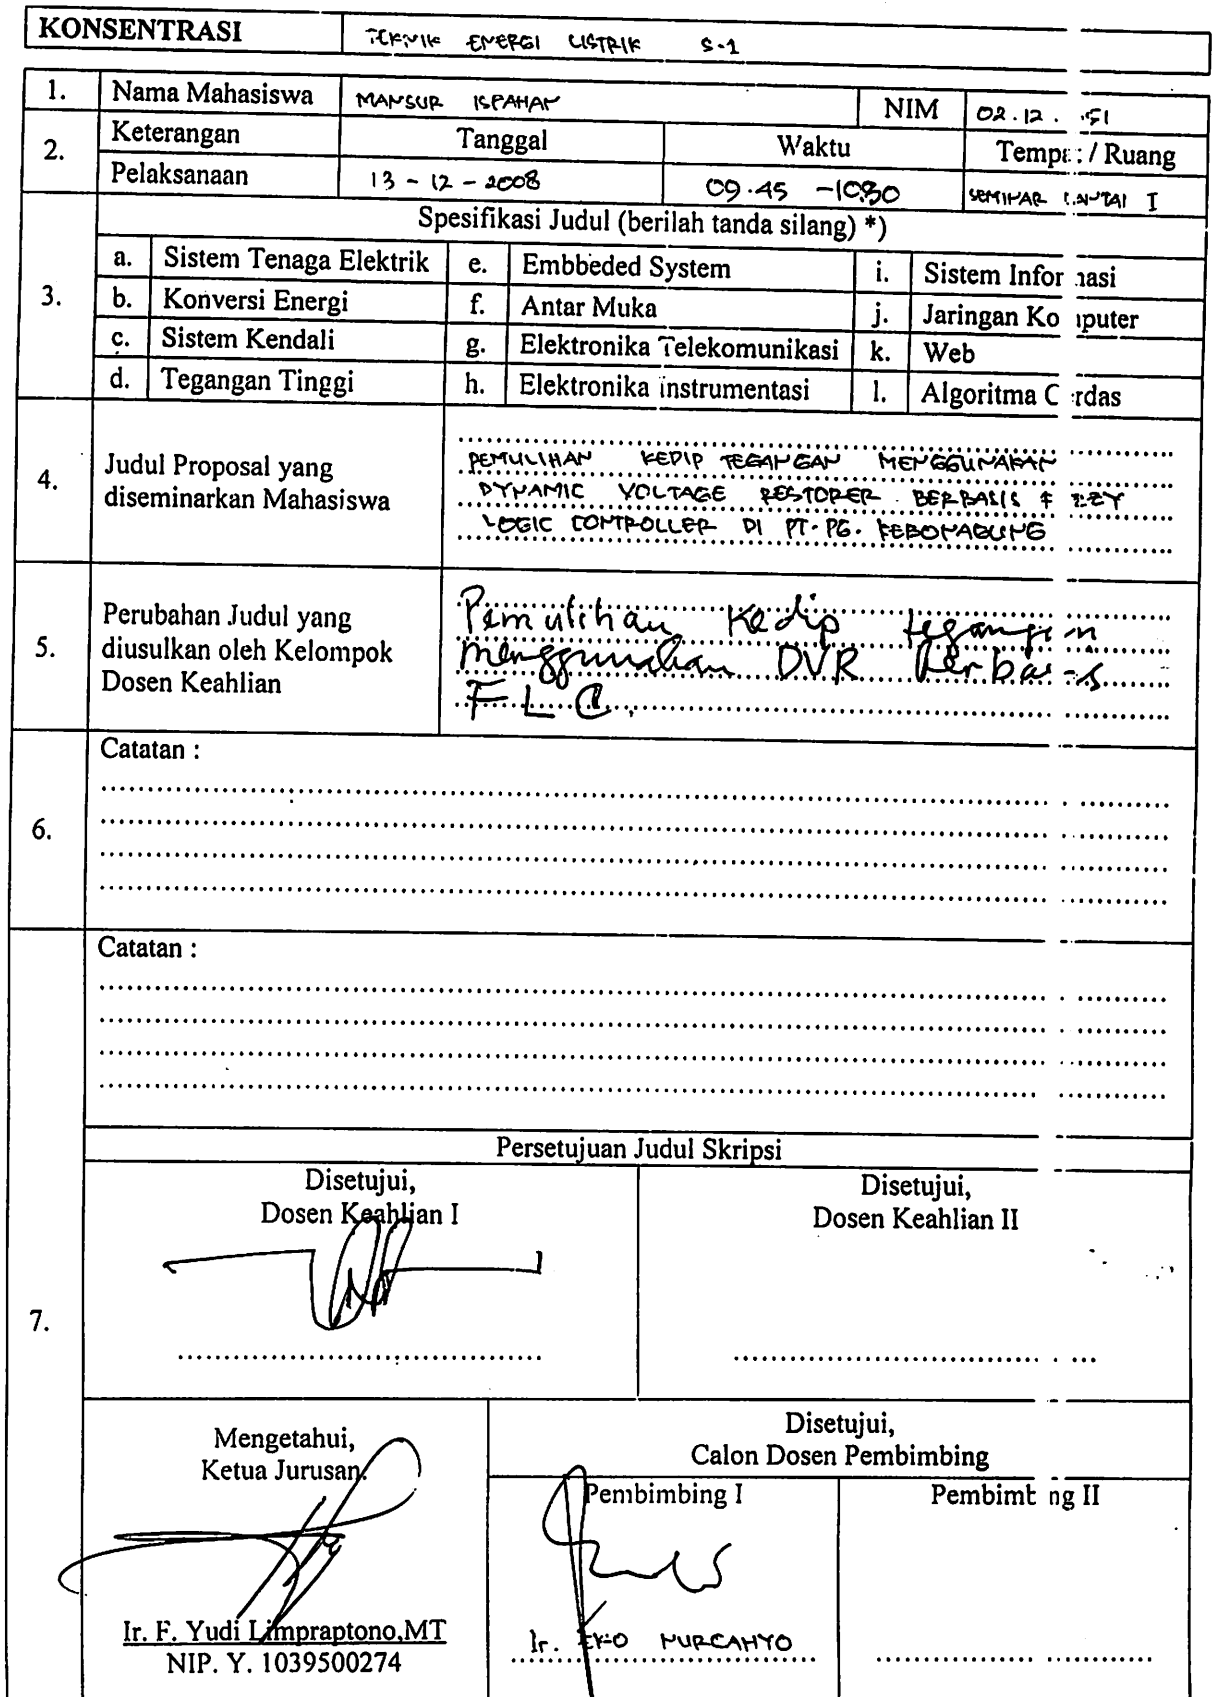 KONSENTRASI TEKNIK ENERGI LISTRIK S-1
1. Nama Mahasiswa MANSUR ISPAHAN NIM 02.12. 51
2. Keterangan Pelaksanaan Tanggal Waktu Tempat / Ruang
13 - 12 - 2008 09.45 - 10.30 SEMINAR LANTAI I
3. Spesifikasi Judul (berilah tanda silang) *)
a. Sistem Tenaga Elektrik e. Embbeded System i. Sistem Informasi
b. Konversi Energi f. Antar Muka j. Jaringan Komputer
c. Sistem Kendali g. Elektronika Telekomunikasi k. Web
d. Tegangan Tinggi h. Elektronika instrumentasi l. Algoritma Cerdas
4. Judul Proposal yang
diseminarkan Mahasiswa
PEMULIHAN KEDIP TEGANGAN MENGGUNAKAN
DYNAMIC VOLTAGE RESTORER BERBASIS FUZZY
LOGIC CONTROLLER DI PT. PG. KEBONAGUNG
5. Perubahan Judul yang
diusulkan oleh Kelompok
Dosen Keahlian
Pemulihan Kedip tegangan
menggunakan DVR berbasis
FLC.
6. Catatan :
Catatan :
7. Persetujuan Judul Skripsi
Disetujui,
Dosen Keahlian I
Disetujui,
Dosen Keahlian II
Mengetahui,
Ketua Jurusan
Ir. F. Yudi Limpraptono,MT
NIP. Y. 1039500274
Disetujui,
Calon Dosen Pembimbing
Pembimbing I Pembimbing II
Ir. EKO NURCAHYO